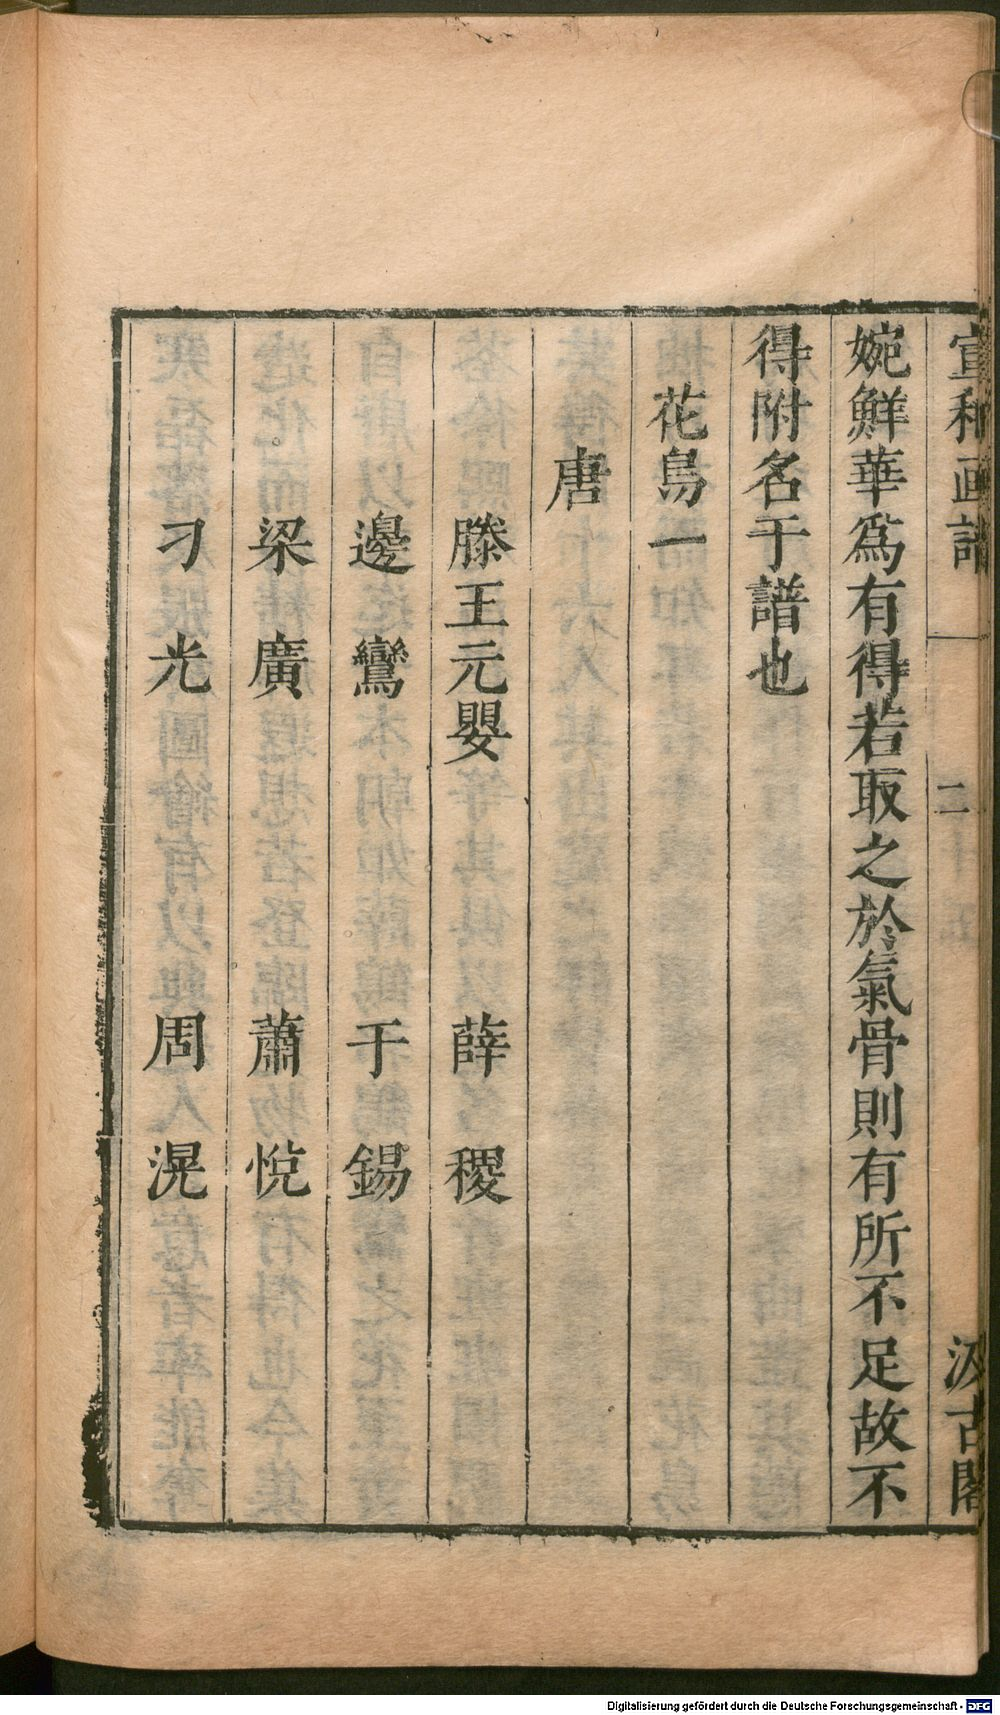 宣和画譜 二 汲古閣
婉鮮華爲有得若取之於氣骨則有所不足故不
得附名于譜也
花鳥一
唐
滕王元嬰 薛稷
邊鸞 于錫
梁廣 蕭悅
刁光 周滉
Digitalisierung gefördert durch die Deutsche Forschungsgemeinschaft - DFG